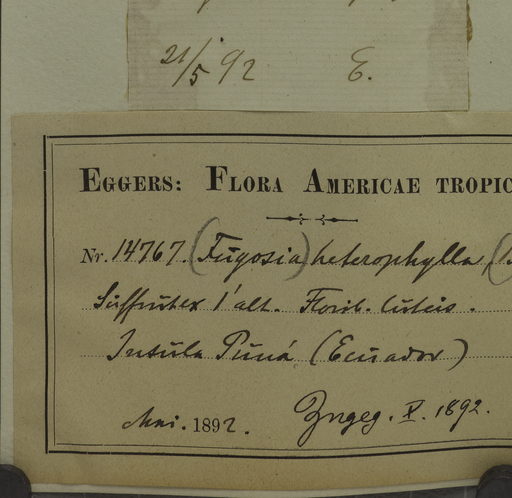 21/5 92 E.
EGGERS: FLORA AMERICAE TROPIC
Nr. 14767. (Fugosia) heterophylla, (
Suffrutex 1' alt. Florib. luteis.
Insula Puná (Ecuador)
Mai. 1892. Zngeg. X. 1892.